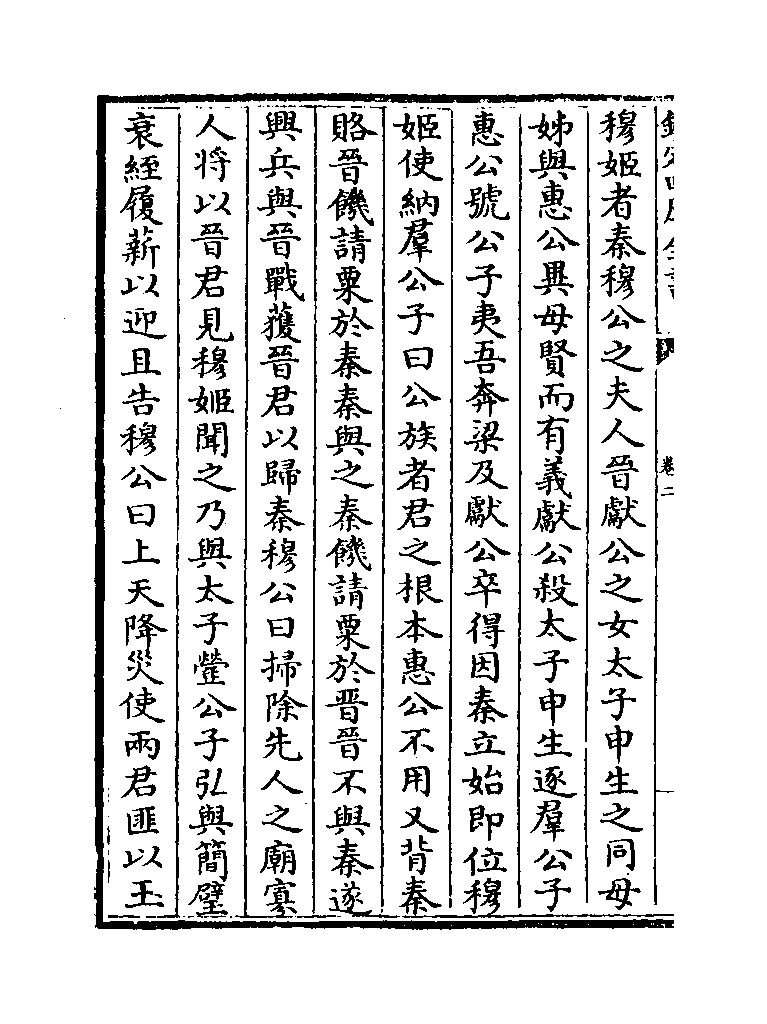 卷二
穆姬者秦穆公之夫人晉獻公之女太子申生之同母
姊與惠公異母賢而有義獻公殺太子申生逐羣公子
惠公號公子夷吾奔梁及獻公卒得因秦立始即位穆
姬使納羣公子曰公族者君之根本惠公不用又背秦
賂晉饑請粟於秦秦與之秦饑請粟於晉晉不與秦遂
興兵與晉戰獲晉君以歸秦穆公曰掃除先人之廟寡
人將以晉君見穆姬聞之乃與太子罃公子弘與簡璧
衰絰履薪以迎且告穆公曰上天降災使兩君匪以玉